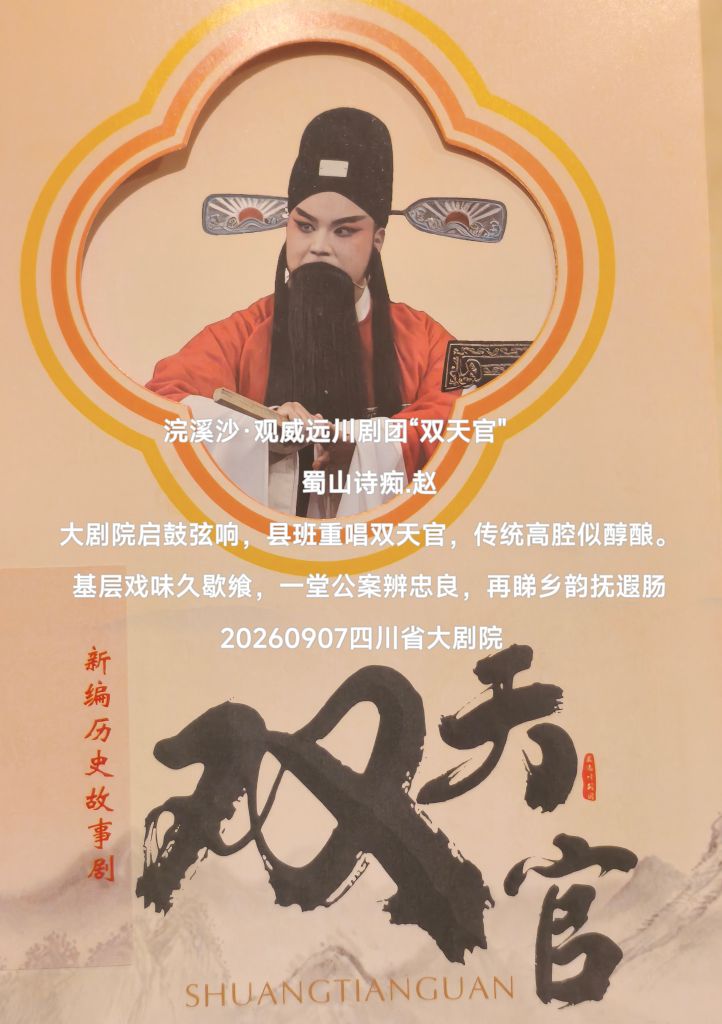 浣溪沙·观威远川剧团“双天官"
蜀山诗痴.赵
大剧院启鼓弦响，县班重唱双天官，传统高腔似醇酿。
基层戏味久歇飨，一堂公案辨忠良，再睇乡韵抚遐肠
20260907四川省大剧院
新编历史故事剧
双天官
SHUANGTIANGUAN